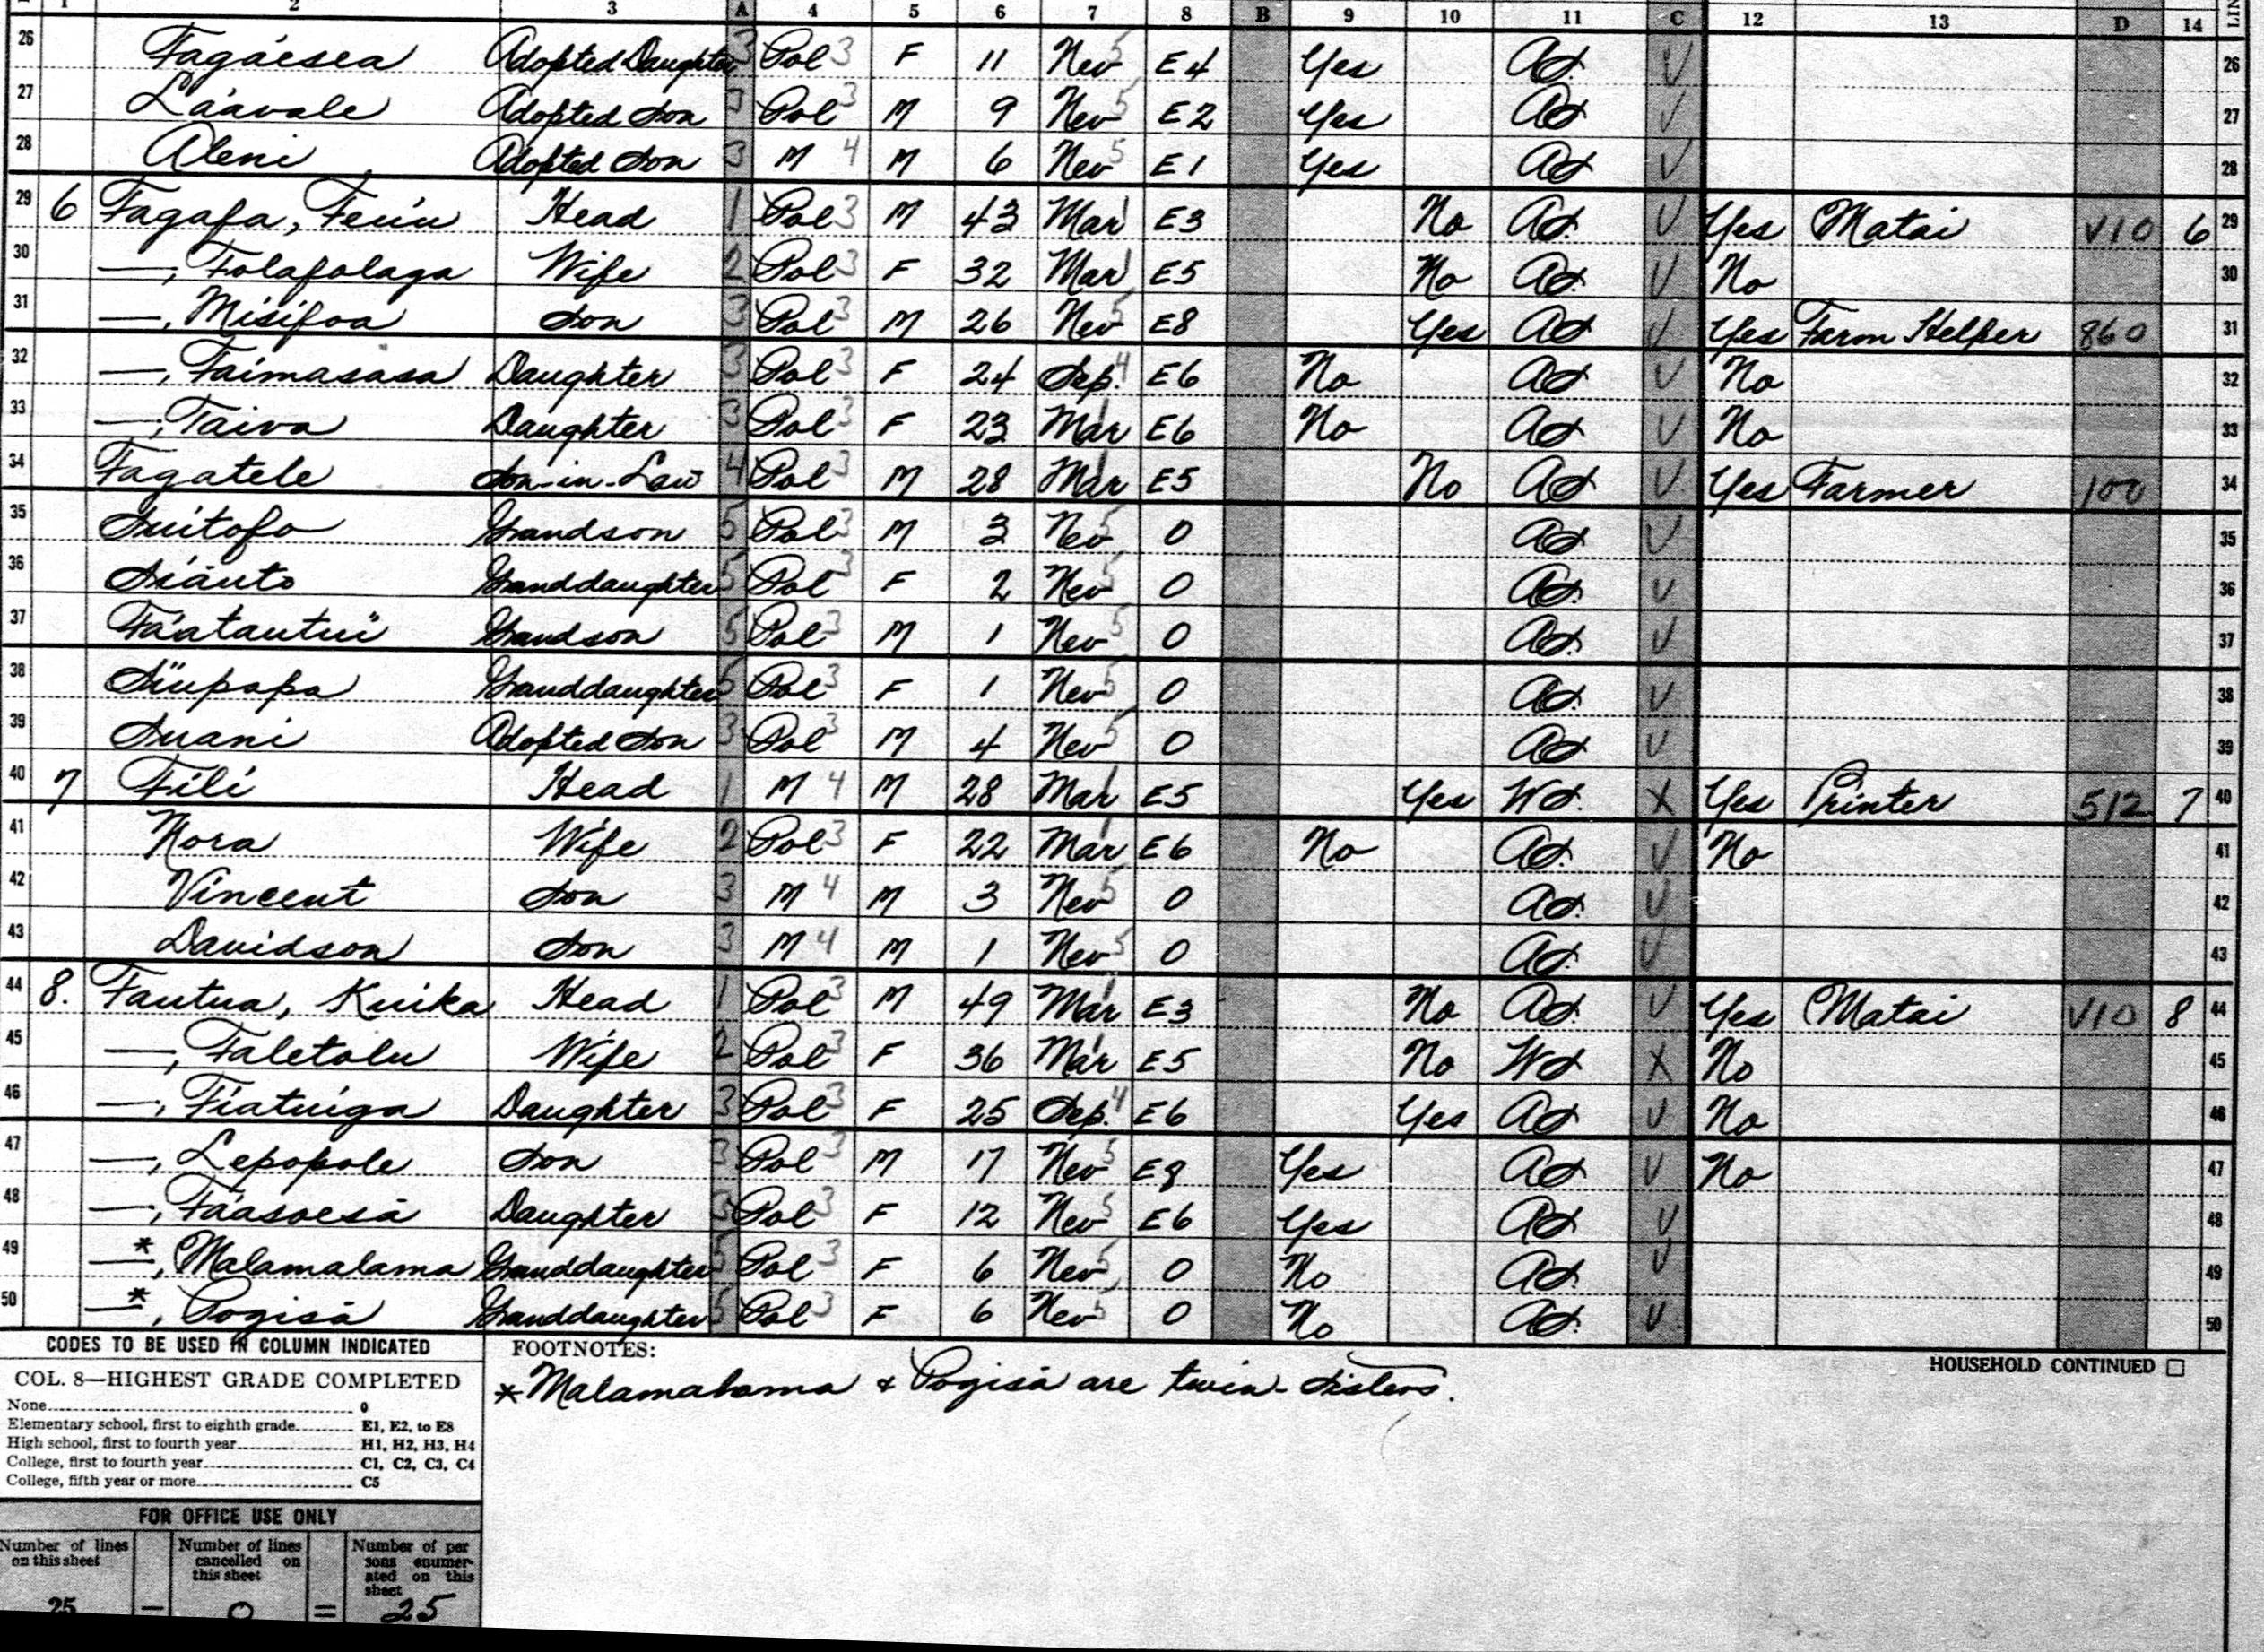 1 2 3 A 4 5 6 7 8 B 9 10 11 C 12 13 D 14
26 Fagáesea Adopted Daughter 3 Pol 3 F 11 Nev 5 E4 Yes AS. V 26
27 Láavale Adopted Son 3 Pol 3 M 9 Nev 5 E2 Yes AS V 27
28 Aleni Adopted Son 3 M 4 M 6 Nev 5 E1 Yes AS V 28
29 6 Fagafa, Feúu Head 1 Pol 3 M 43 Mar 1 E3 No AS. V Yes Matai V10 6 29
30 —, Folafolaga Wife 2 Pol 3 F 32 Mar 1 E5 No AS. V No 30
31 —, Misifoa Son 3 Pol 3 M 26 Nev 5 E8 Yes AS V Yes Farm Helper 860 31
32 —, Faímasasa Daughter 3 Pol 3 F 24 Sep. 4 E6 No AS V No 32
33 —, Taiva Daughter 3 Pol 3 F 23 Mar 1 E6 No AS V No 33
34 Fagatele Son-in-Law 4 Pol 3 M 28 Mar 1 E5 No AS V Yes Farmer 100 34
35 Suitofo Grandson 5 Pol 3 M 3 Nev 5 0 AS V 35
36 Siáuto Granddaughter 5 Pol 3 F 2 Nev 5 0 AS. V 36
37 Fáatautuí Grandson 5 Pol 3 M 1 Nev 5 0 AS. V 37
38 Siupapa Granddaughter 5 Pol 3 F 1 Nev 5 0 AS. V 38
39 Suani Adopted Son 3 Pol 3 M 4 Nev 5 0 AS V 39
40 7 Fili Head 1 M 4 M 28 Mar 1 E5 Yes WS. X Yes Printer 512 7 40
41 Nora Wife 2 Pol 3 F 22 Mar 1 E6 No AS. V No 41
42 Vincent Son 3 M 4 M 3 Nev 5 0 AS. V 42
43 Davidson Son 3 M 4 M 1 Nev 5 0 AS. V 43
44 8. Fautua, Kuika Head 1 Pol 3 M 49 Mar 1 E3 No AS. V Yes Matai V10 8 44
45 —, Faletolu Wife 2 Pol 3 F 36 Mar 1 E5 No WS X No 45
46 —, Fiatuiga Daughter 3 Pol 3 F 25 Sep. 4 E6 Yes AS V No 46
47 —, Lepopole Son 3 Pol 3 M 17 Nev 5 E8 Yes AS V No 47
48 —, Fáasoesā Daughter 3 Pol 3 F 12 Nev 5 E6 Yes AS V 48
49 —*, Malamalama Granddaughter 5 Pol 3 F 6 Nev 5 0 No AS. V 49
50 —*, Pogisā Granddaughter 5 Pol 3 F 6 Nev 5 0 No AS. V 50
CODES TO BE USED IN COLUMN INDICATED
COL. 8—HIGHEST GRADE COMPLETED
None 0
Elementary school, first to eighth grade E1, E2, to E8
High school, first to fourth year H1, H2, H3, H4
College, first to fourth year C1, C2, C3, C4
College, fifth year or more C5
FOOTNOTES:
* Malamalama & Pogisā are twin-sisters.
HOUSEHOLD CONTINUED
FOR OFFICE USE ONLY
Number of lines on this sheet
25
–
Number of lines cancelled on this sheet
0
=
Number of persons enumerated on this sheet
25